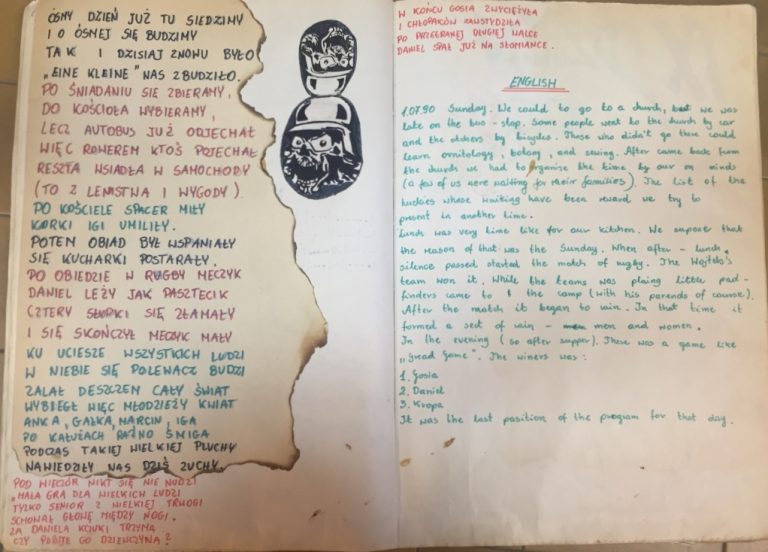 ÓSMY DZIEŃ JUŻ TU SIEDZIMY
I O ÓSMEJ SIĘ BUDZIMY
TAK I DZISIAJ ZNOWU BYŁO
„EINE KLEINE" NAS ZBUDZIŁO.
PO ŚNIADANIU SIĘ ZBIERAMY,
DO KOŚCIOŁA WYBIERAMY,
LECZ AUTOBUS JUŻ ODJECHAŁ
WIĘC ROWEREM KTOŚ POJECHAŁ
RESZTA WSIADŁA W SAMOCHODY
(TO Z LENISTWA I WYGODY)
PO KOŚCIELE SPACER MIŁY
KORKI IGI UMILIŁY.
POTEM OBIAD BYŁ WSPANIAŁY
SIĘ KUCHARKI POSTARAŁY.
PO OBIEDZIE W RUGBY MECZYK
DANIEL LEŻY JAK PASZTECIK
CZTERY SŁUPKI SIĘ ZŁAMAŁY
I SIĘ SKOŃCZYŁ MECZYK MAŁY
KU UCIESZE WSZYSTKICH LUDZI
W NIEBIE SIĘ POLEWACZ BUDZI
ZALAŁ DESZCZEM CAŁY ŚWIAT
WYBIEGŁ WIĘC MŁODZIEŻY KWIAT
ANKA, GAŁKA, MARCIN, IGA
PO KAŁUŻACH RAŹNO ŚMIGA
PODCZAS TAKIEJ WIELKIEJ PLUCHY
NAWIEDZIŁY NAS DZIŚ ZUCHY.
POD WIECZÓR NIKT SIĘ NIE NUDZI
„MAŁA GRA DLA WIELKICH LUDZI
TYLKO SENIOR Z WIELKIEJ TRWOGI
SCHOWAŁ GŁOWĘ MIĘDZY NOGI.
ZA DANIELA KCIUKI TRZYMA
CZY POBIJE GO DZIEWCZYNA?
W KOŃCU GOSIA ZWYCIĘŻYŁA
I CHŁOPAKÓW ZAWSTYDZIŁA
PO PRZEGRANEJ DŁUGIEJ WALCE
DANIEL SPAŁ JUŻ NA SŁOMIANCE.
ENGLISH
1.07.90 Sunday. We could to go to a church, but we was
late on the bus - stop. Some people went to the church by car
and the otchers by bicycles. Those who didn't go there could
learn ornitology, botany, and sewing. After came back from
the church we had to organize the time by our on minds
(a few of us were waiting for their families). The list of the
luckies whose waiting have been reward we try to
present in another time.
Lunch was very time like for our kitchen. We supose that
the reason of that was the Sunday. When after - lunch
silence passed started the match of rugby. The Wojtek's
team won it. While the teams was plaing little pad-
finders came to the camp (with his parends of course).
After the match it began to rain. In that time it
formed a sect of rain - men and women.
In the evening (so after supper). There was a game like
„Great Game". The winers was:
1. Gosia
2. Daniel
3. Kropa
It was the last position of the program for that day.